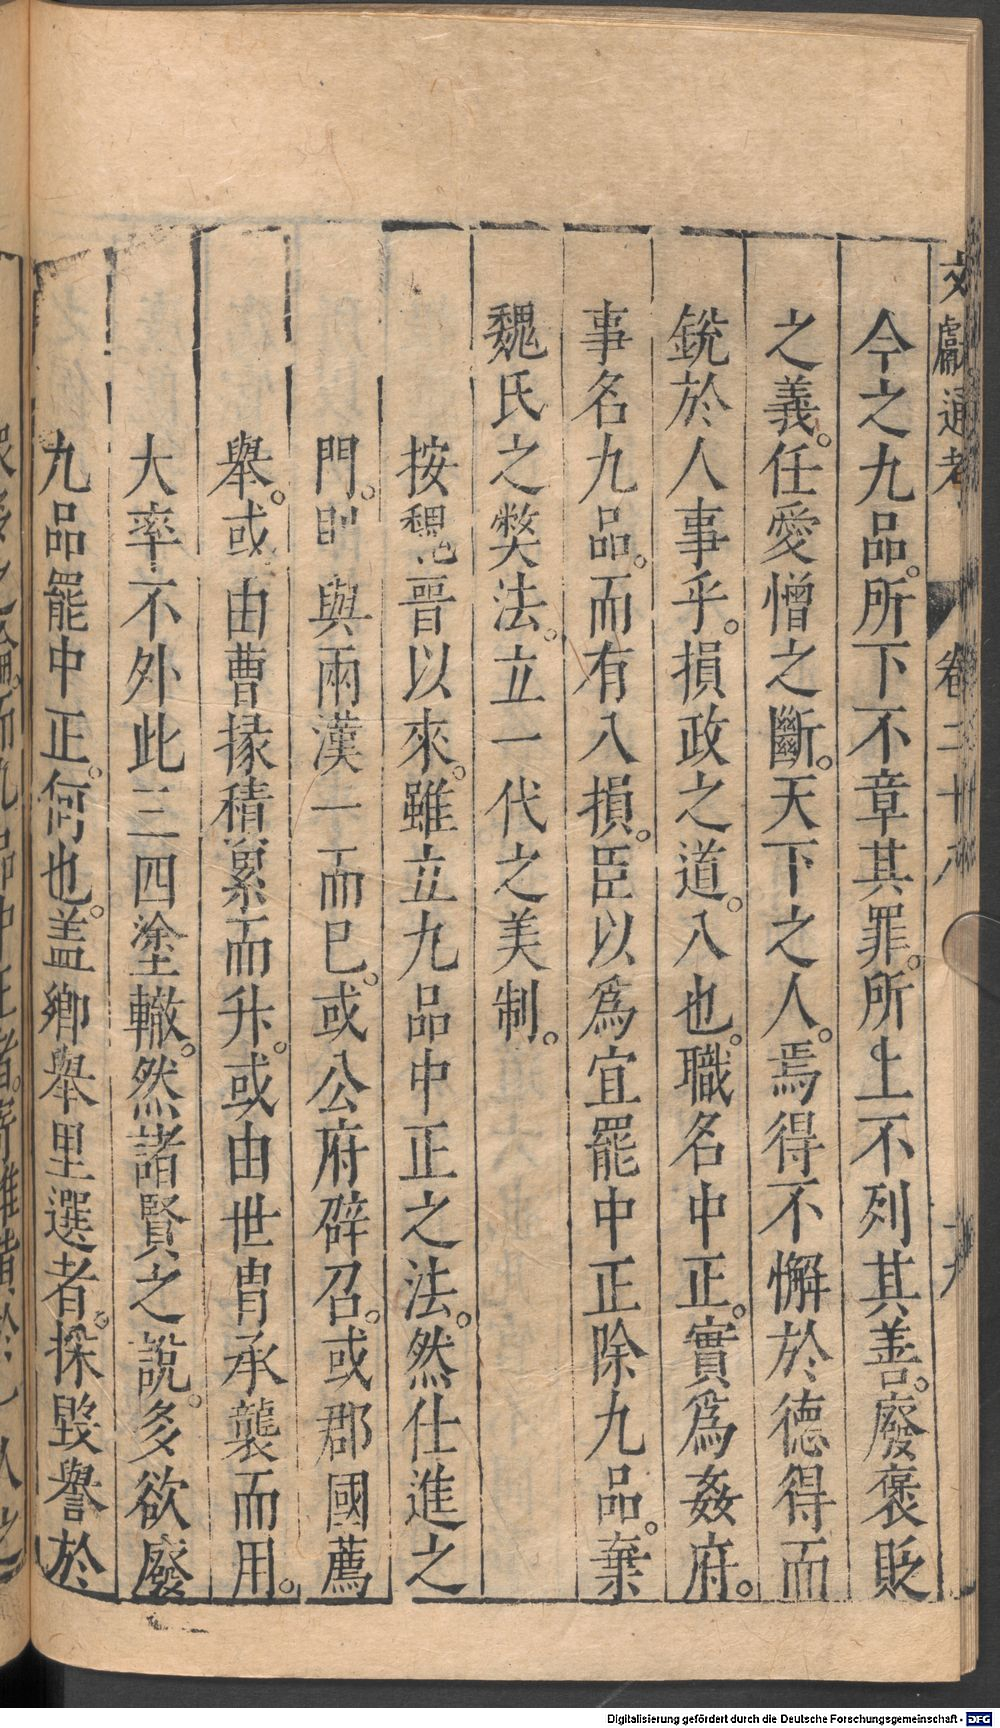 文獻通考 卷二十八 十九
今之九品。所下不章其罪。所上不列其善。廢褒貶
之義。任愛憎之斷。天下之人。焉得不懈於德得而
銳於人事乎。損政之道。八也。職名中正。實爲姦府。
事名九品。而有八損。臣以爲宜罷中正除九品。棄
魏氏之獘法。立一代之美制。
按魏晉以來。雖立九品中正之法。然仕進之
門。則與兩漢一而已。或公府辟召。或郡國薦
舉。或由曹掾積累而升。或由世胄承襲而用。
大率不外此三四塗轍。然諸賢之說。多欲廢
九品罷中正。何也。盖鄉舉里選者。採毀譽於
Digitalisierung gefördert durch die Deutsche Forschungsgemeinschaft - DFG